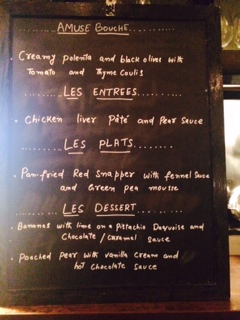 AMUSE BOUCHE
. Creamy polenta and black olives with
Tomato and Thyme Coulis
LES ENTREES
. Chicken liver Pâté and Pear Sauce
LES PLATS
. Pan-fried Red snapper with fennel Sauce
and Green pea mousse
LES DESSERT
. Bananas with lime on a Pistachio Daquoise and
Chocolate / caramel sauce
. Poached Pear with vanilla Cream and
hot chocolate sauce